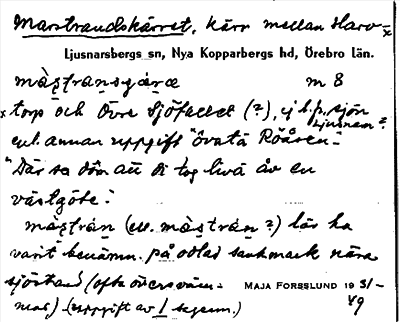 Marstrandskärret, kärr mellan Harv-x
Ljusnarsbergs sn, Nya Kopparbergs hd, Örebro län.
màstransgäræ m 8
x torp och Övre Sjöfallet (?), ej l.p. sjön Ljusnan?
enl. annan uppgift "övatá Rååsen".
"Där sa dôm att di tog livä åv en
västgöte".
màstrán (ell. màstrán?) lär ha
varit benämn. på odlad sankmark nära
sjöstrand (ofta översväm-
mad) (uppgift av 1 sagesm.)
MAJA FORSSLUND 19 31/-
49